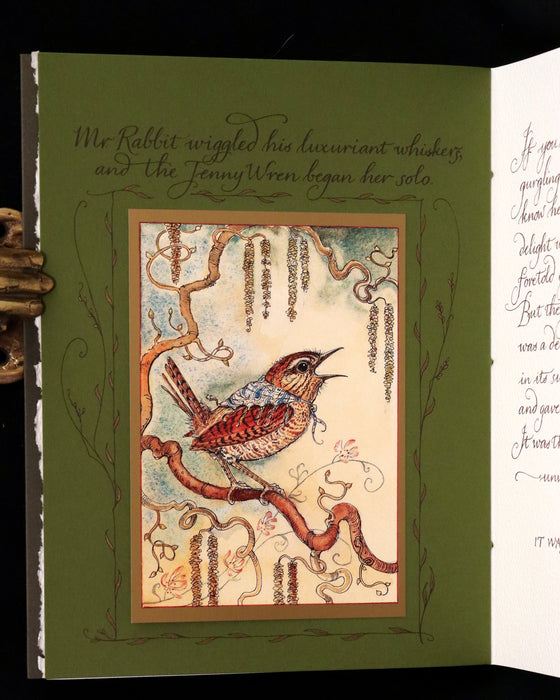 Mr Rabbit wiggled his luxuriant whiskers,
and the Jenny Wren began her solo.
If you
gurgling
know he
delight
foretold
But the
was a de
in its s
and gave
It was th
IT WA